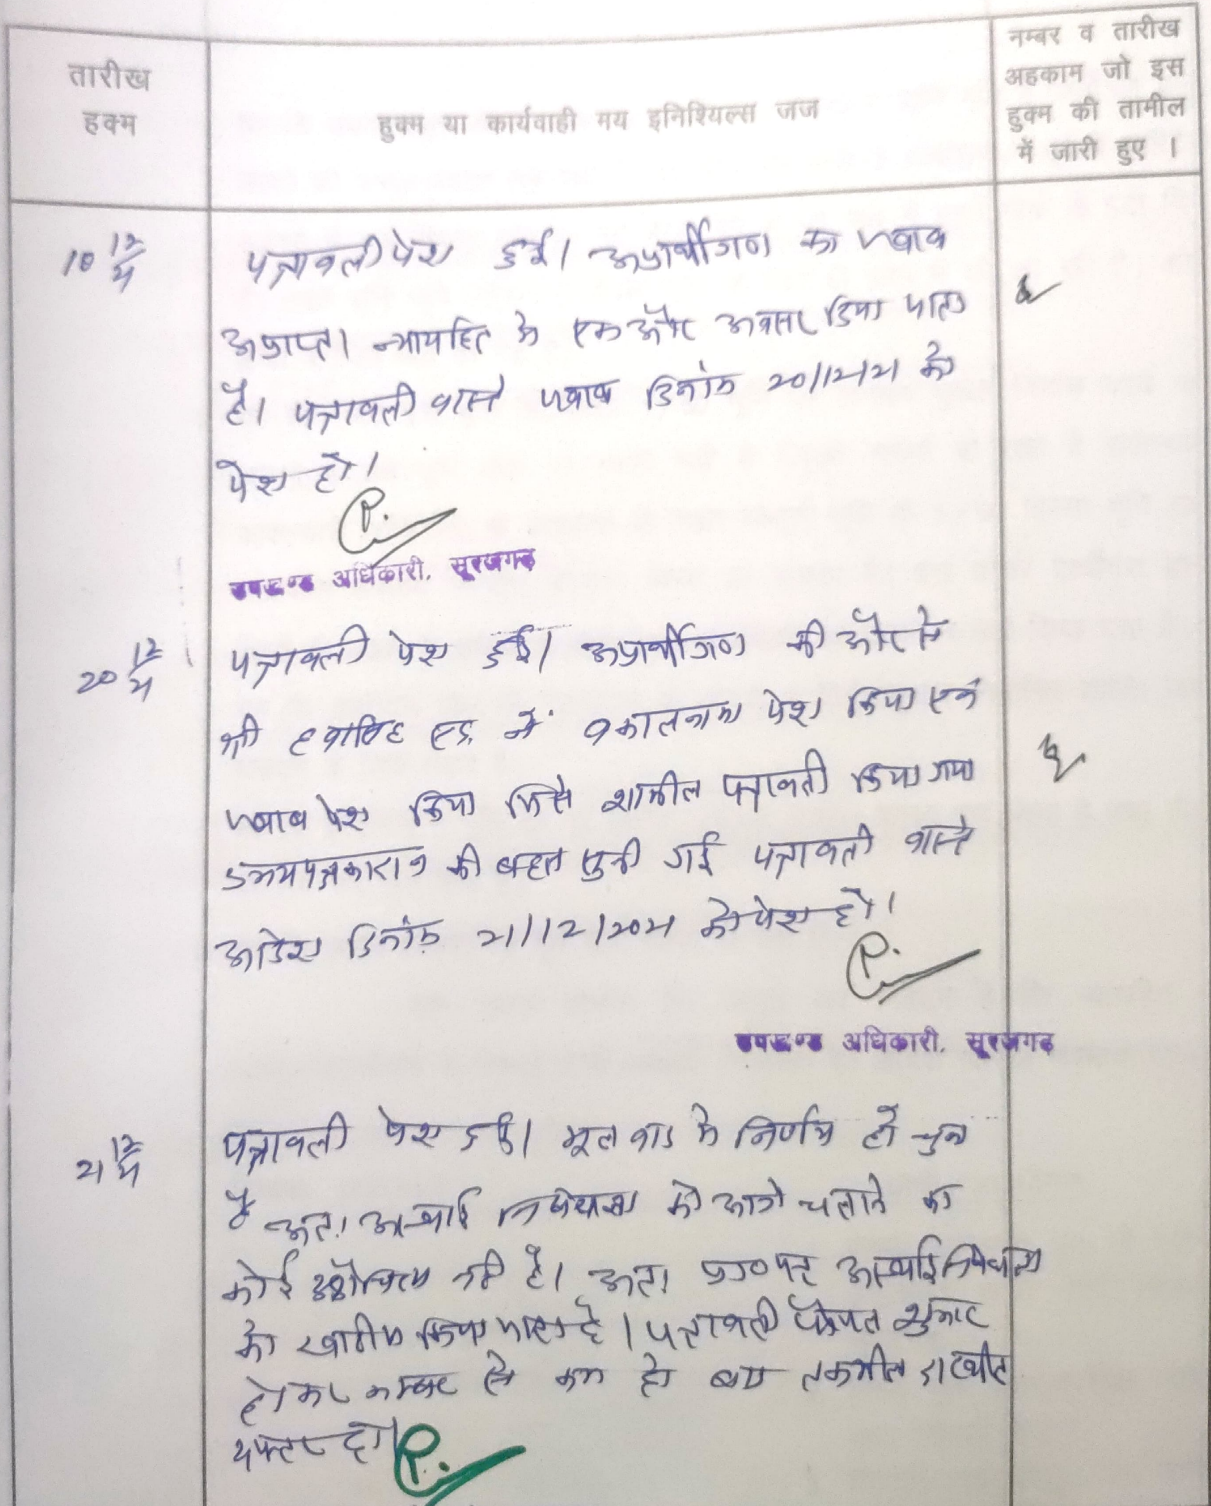 तारीख
हक्म
हुक्म या कार्यवाही मय इनिशियल्स जज
नम्बर व तारीख
अहकाम जो इस
हुक्म की तामील
में जारी हुए ।
10 12/21
पत्रावली पेश हुई। अप्रार्थीगण का जवाब
अप्राप्त। न्यायहित मे एक और अवसर दिया जाता
है। पत्रावली वास्ते जवाब दिनांक 20/12/21 को
पेश हो।
उपखण्ड अधिकारी, सूरजगढ
20 12/21
पत्रावली पेश हुई। अप्रार्थीगण की और से
श्री एड. ने वकालतनामा पेश किया एवं
जवाब पेश किया जिसे शामील पत्रावली किया गया
उभयपक्षकारान की बहस सुनी गई पत्रावली वास्ते
आदेश दिनांक 21/12/2021 को पेश हो।
उपखण्ड अधिकारी, सूरजगढ
21 12/21
पत्रावली पेश हुई। मूल वाद मे निर्णय हो चुका
है अत। अस्थाई निषेधाज्ञा को आगे चलाने का
कोई औचित्य नही है। अत। प्रा०पत्र अस्थाई निषेधाज्ञा
को खारीज किया जाता है। पत्रावली फैसल शुमार
होकर नम्बर से कम हो बाद तकमील दाखील
दफ्तर हो।